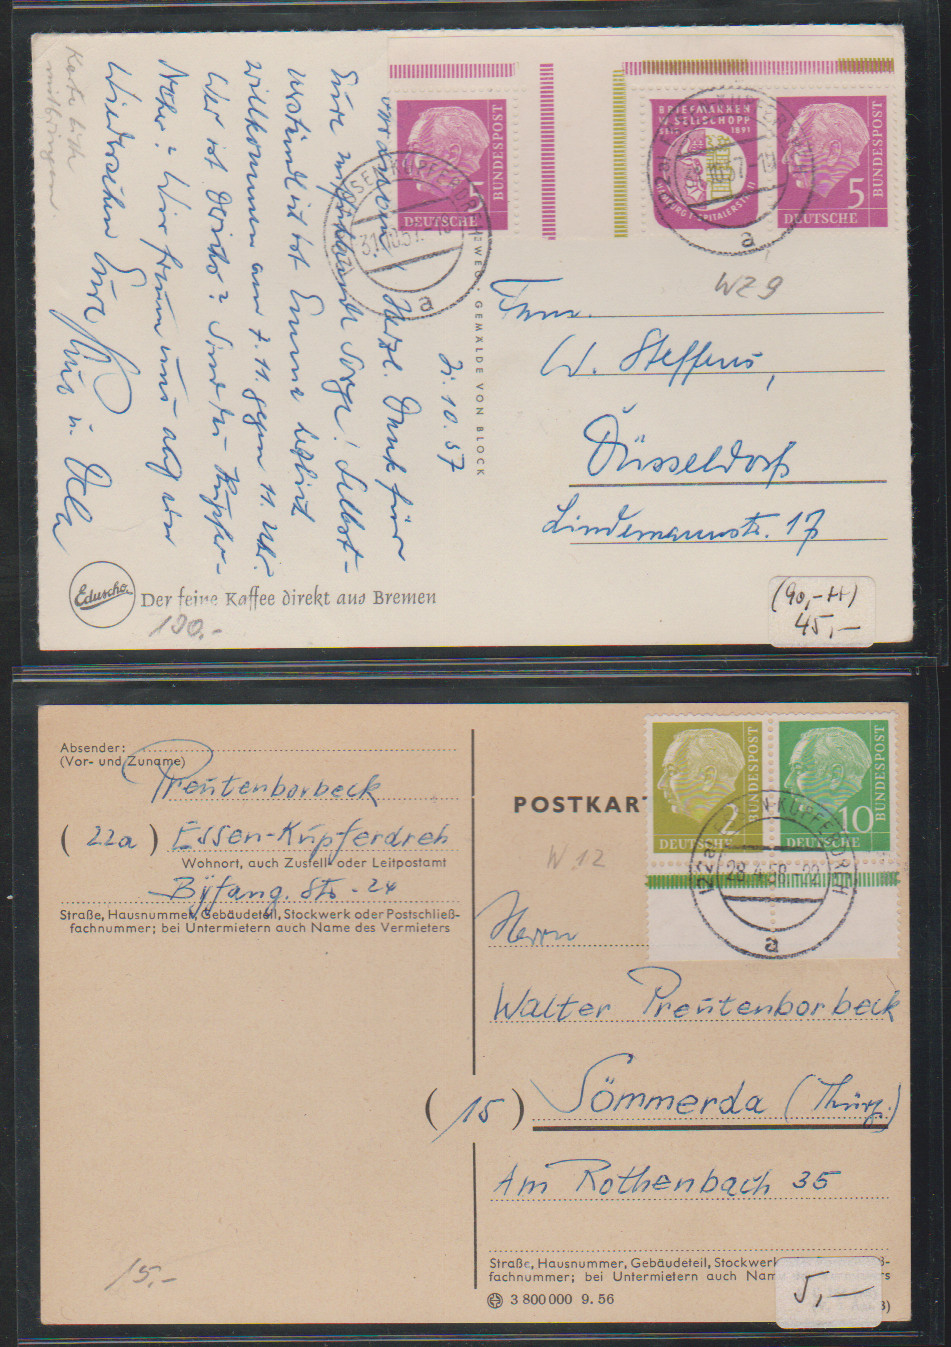 Karte bitte
mitbringen.
31.10.57
Herzl. Dank für
Eure
Sorge! Selbst-
verständl. ist Emma
willkommen am 7.11. gegen 11 Uhr.
Wer ist
Wir freuen uns auf ein
Wiedersehen Eure
u. Ella
WEG · GEMÄLDE VON BLOCK
Eduscho
Der feine Kaffee direkt aus Bremen
190,-
5
DEUTSCHE
BUNDESPOST
BRIEFMARKEN
W SELLSCHOPP
SEIT 1891
HAMBURG SPITALERSTR.
5
DEUTSCHE
BUNDESPOST
ESSEN-KUPFERDREH
31.10.57
a
a
WZ 9
Fam.
W. Steffens,
Düsseldorf
Lindemannstr. 17
(90,-++)
45,-
Absender:
(Vor- und Zuname)
Preutenborbeck
(22a) Essen-Kupferdreh
Wohnort, auch Zustell- oder Leitpostamt
Byfang. Str. 24
Straße, Hausnummer, Gebäudeteil, Stockwerk oder Postschließ-
fachnummer; bei Untermietern auch Name des Vermieters
15,-
POSTKAR
W 12
2
DEUTSCHE
BUNDESPOST
10
DEUTSCHE
BUNDESPOST
(22a) ESSEN-KUPFERDREH
a
Herrn
Walter Preutenborbeck
(15) Sömmerda (Thürg.)
Am Rothenbach 35
Straße, Hausnummer, Gebäudeteil, Stockwerk
fachnummer; bei Untermietern auch Nam
3 800 000 9. 56
5,-